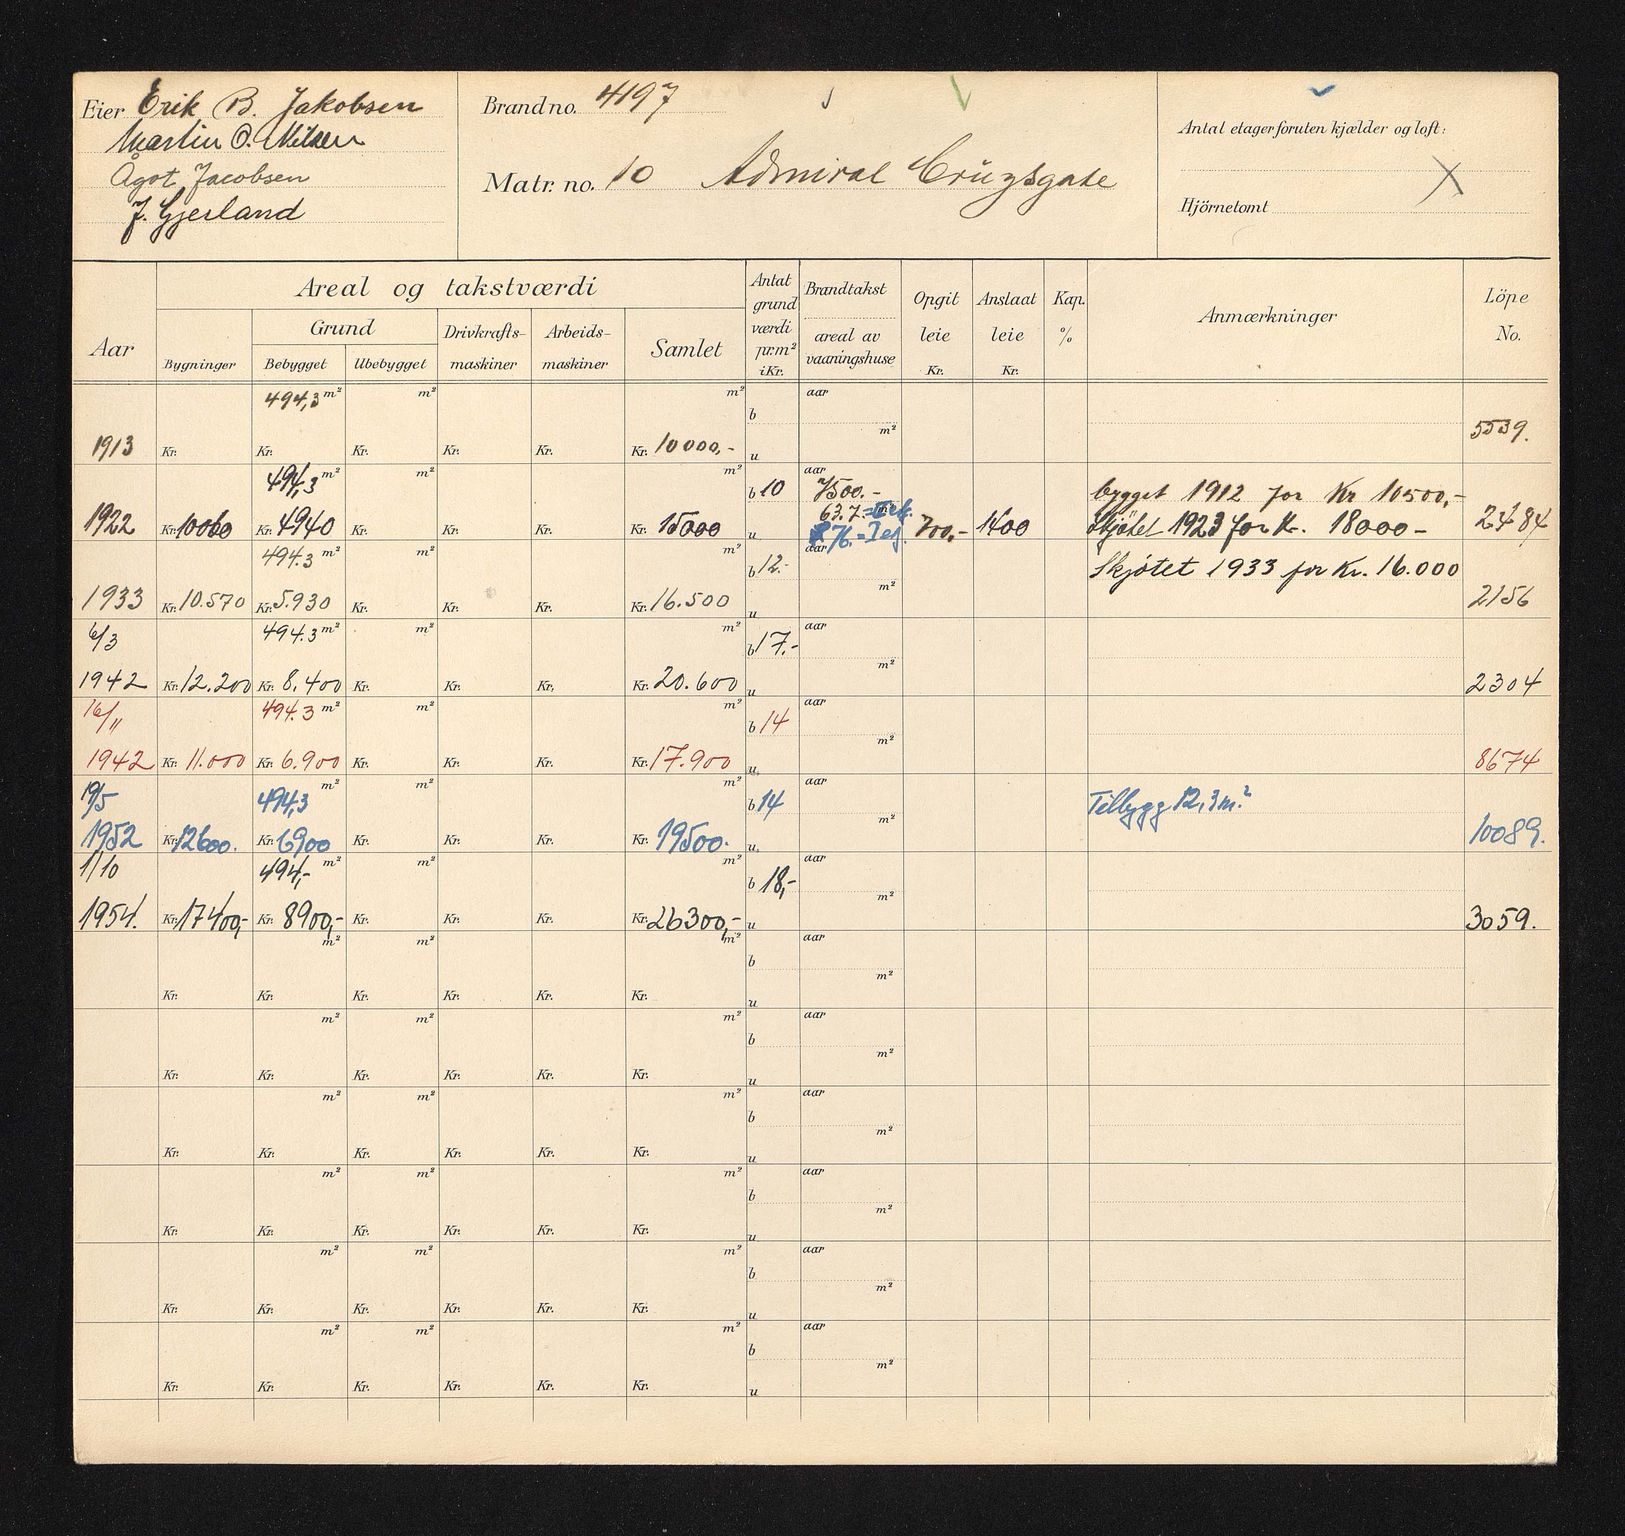 Eier Erik B. Jakobsen
Martin O. Nilsen
Ågot Jacobsen
J. Gjerland
Brandno. 4197
Matr. no. 10 Admiral Cruysgate
Antal etager foruten kjælder og loft:
Hjörnetomt
Aar
Areal og takstværdi
Bygninger
Grund
Bebygget
Ubebygget
Drivkrafts-
maskiner
Arbeids-
maskiner
Samlet
Antat
grund
værdi
pr.m²
i Kr.
Brandtakst
areal av
vaaningshuse
Opgit
leie
Kr.
Anslaat
leie
Kr.
Kap.
%
Anmærkninger
Löpe
No.
494,3 m² m² m² b aar
1913 Kr. Kr. Kr. Kr. Kr. Kr. 10000,- u m² 5539.
494,3 m² m² m² b 10 aar 7500.- bygget 1912 for Kr 10500,-
63.7.
1922 Kr. 10060 Kr. 4940 Kr. Kr. Kr. Kr. 15000 u 76. 700,- 1400 Skjötet 1923 for Kr. 18000- 2484
494.3 m² m² m² b 12.- aar Skjøtet 1933 for Kr. 16.000
1933 Kr. 10.570 Kr. 5.930 Kr. Kr. Kr. Kr. 16.500 u m² 2156
6/3 494.3 m² m² m² b 17.- aar
1942 Kr. 12.200 Kr. 8.400 Kr. Kr. Kr. Kr. 20.600 u m² 2304
16/11 494.3 m² m² m² b 14 aar
1942 Kr. 11.000 Kr. 6.900 Kr. Kr. Kr. Kr. 17.900 u m² 8674
19/5 494,3 m² m² m² b 14 aar Tilbygg 12,3 m.²
1952 Kr. 12600. Kr. 6900 Kr. Kr. Kr. Kr. 19500. u m² 10089.
1/10 494,- m² m² m² b 18,- aar
1954. Kr. 17400,- Kr. 8900,- Kr. Kr. Kr. Kr. 26300,- u m² 3059.
m² m² m² b aar
Kr. Kr. Kr. Kr. Kr. Kr. u m²
m² m² m² b aar
Kr. Kr. Kr. Kr. Kr. Kr. u m²
m² m² m² b aar
Kr. Kr. Kr. Kr. Kr. Kr. u m²
m² m² m² b aar
Kr. Kr. Kr. Kr. Kr. Kr. u m²
m² m² m² b aar
Kr. Kr. Kr. Kr. Kr. Kr. u m²
m² m² m² b aar
Kr. Kr. Kr. Kr. Kr. Kr. u m²